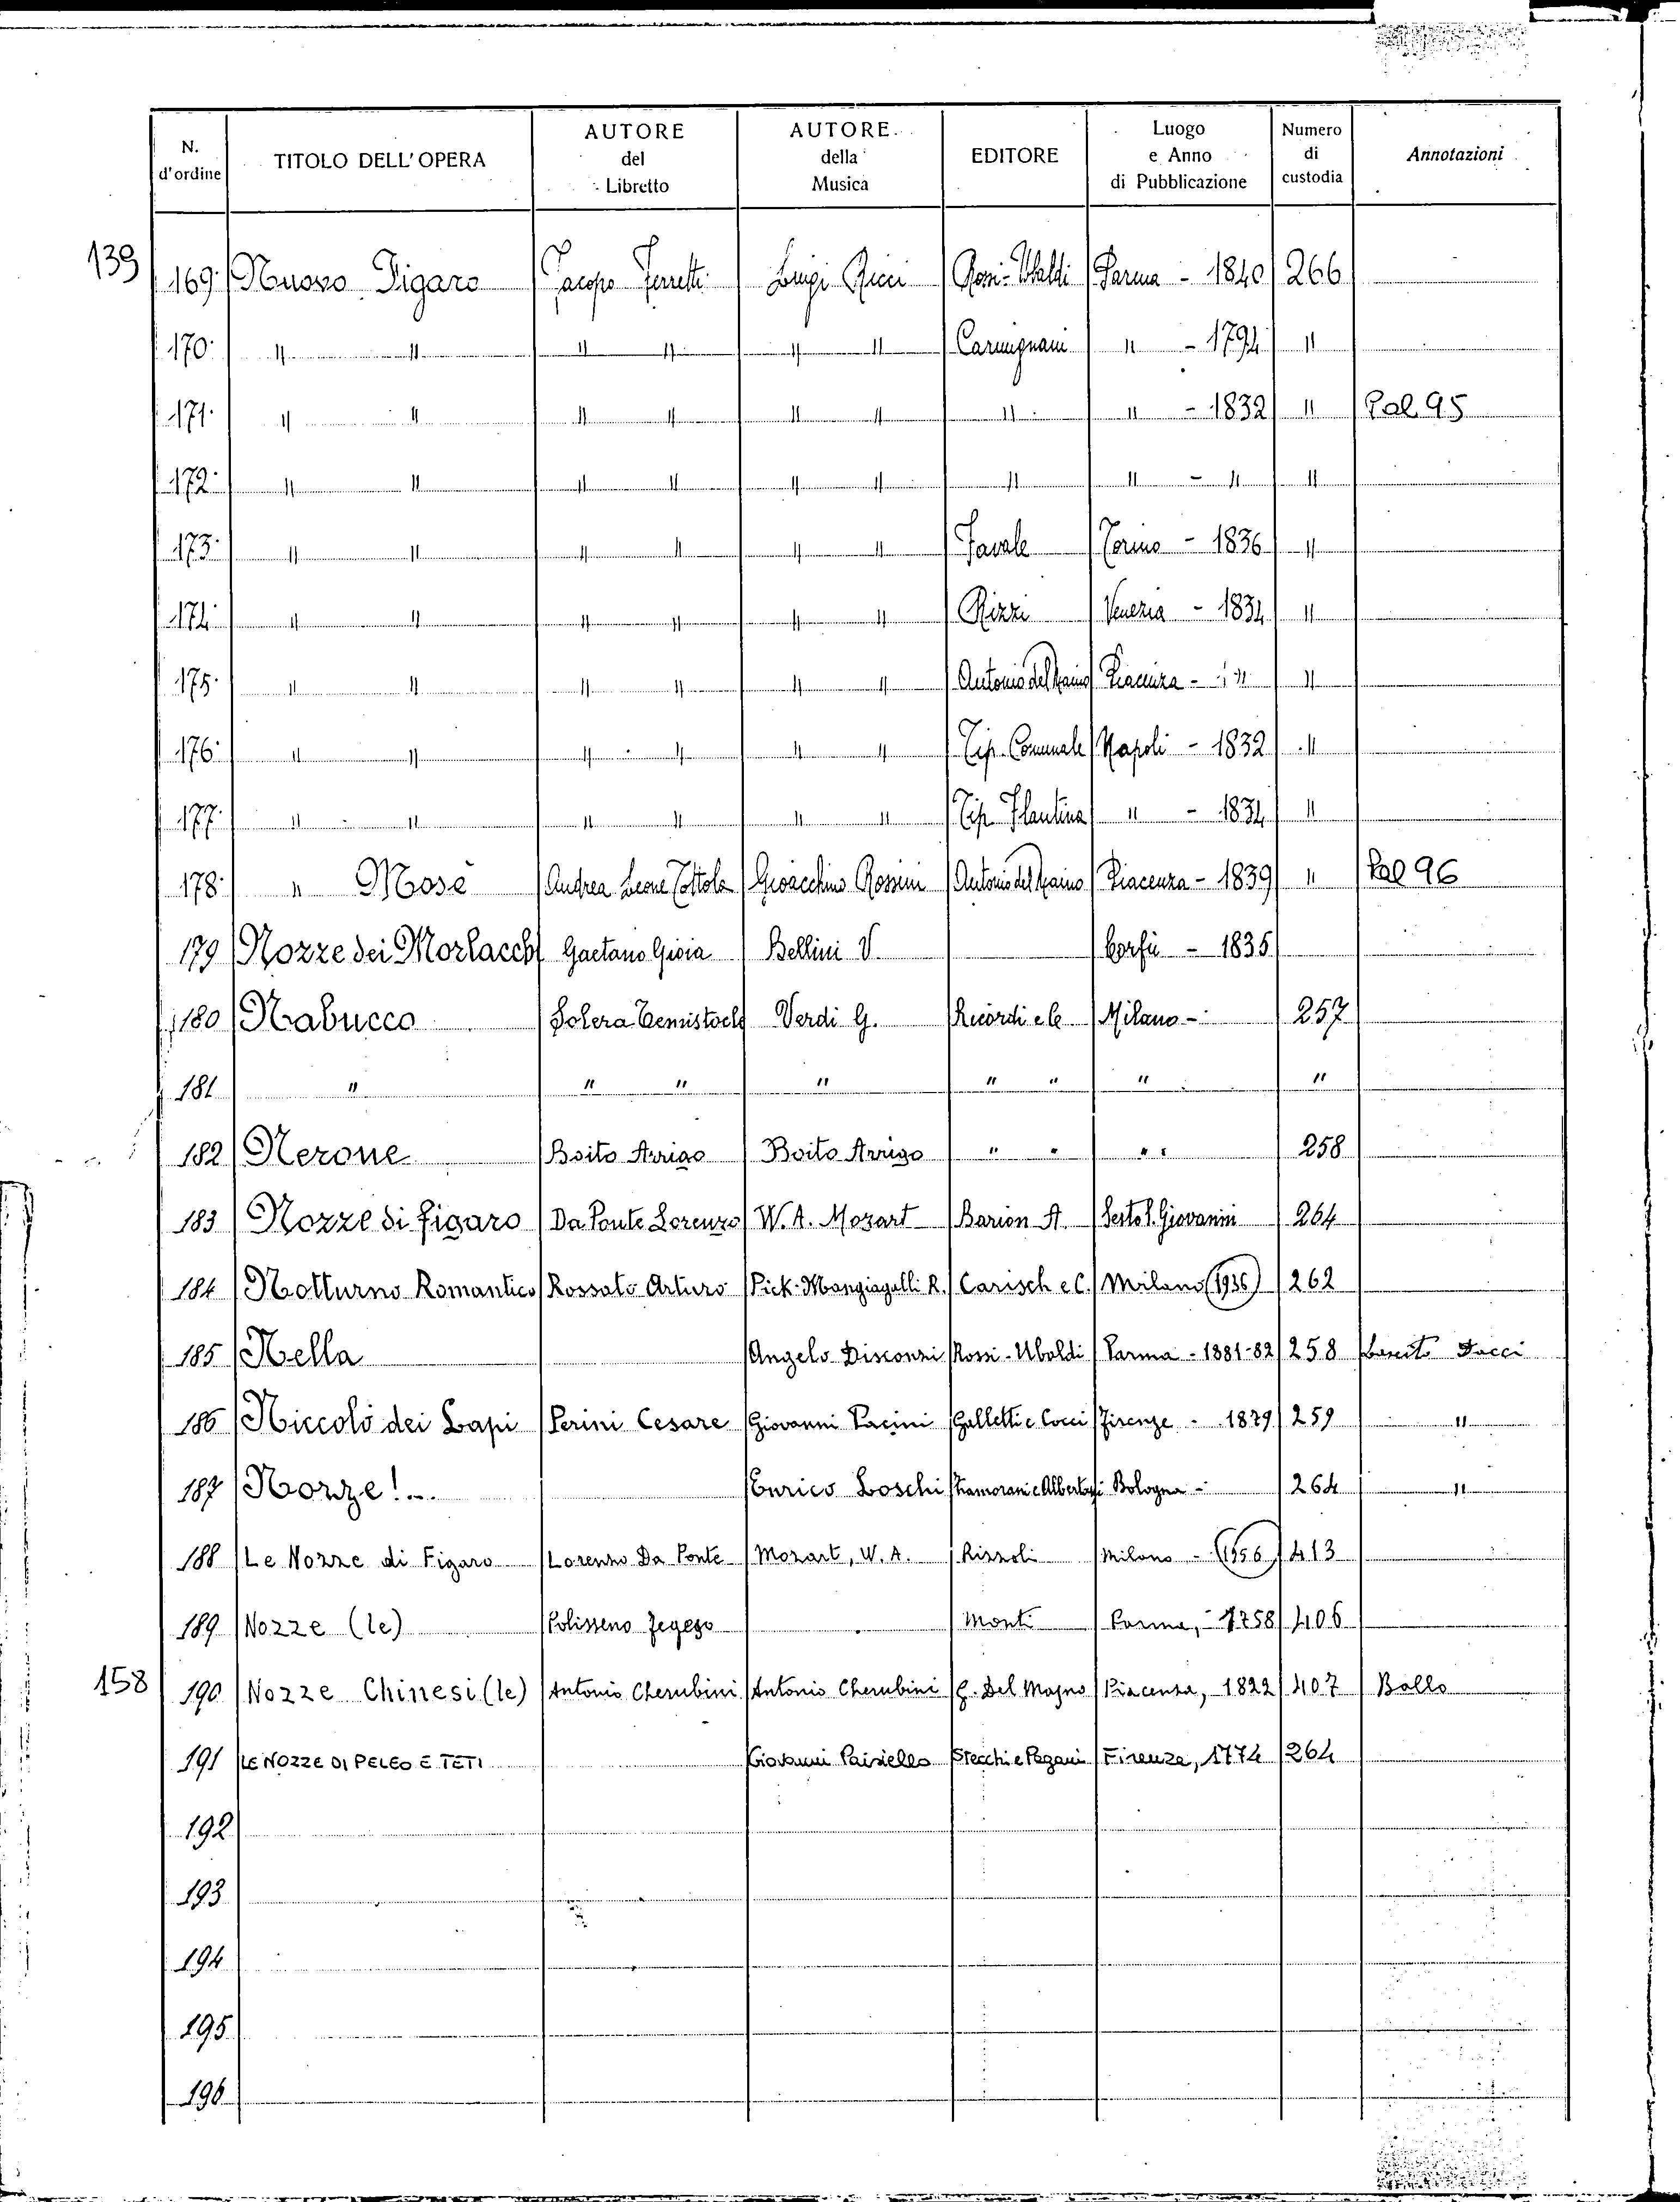 N. d'ordine TITOLO DELL'OPERA AUTORE del Libretto AUTORE della Musica EDITORE Luogo e Anno di Pubblicazione Numero di custodia Annotazioni
139 169 Nuovo Figaro Jacopo Ferretti Luigi Ricci Rossi-Ubaldi Parma - 1840 266
170 " " " " " " Carmignani " - 1794 "
171 " " " " " " " " - 1832 " Pal 95
172 " " " " " " " " - " "
173 " " " " " " Favale Torino - 1836 "
174 " " " " " " Rizzi Venezia - 1834 "
175 " " " " " " Antonio del Maino Piacenza - " "
176 " " " " " " Tip. Comunale Napoli - 1832 "
177 " " " " " " Tip. Flautina " - 1834 "
178 " Mosè Andrea Leone Tottola Gioacchino Rossini Antonio del Maino Piacenza - 1839 " Pal 96
179 Nozze dei Morlacchi Gaetano Gioia Bellini V. Corfù - 1835
180 Nabucco Solera Temistocle Verdi G. Ricordi e C Milano - 257
181 " " " " " " " "
182 Nerone Boito Arrigo Boito Arrigo " " " " 258
183 Nozze di figaro Da Ponte Lorenzo W. A. Mozart Barion A. Sesto S. Giovanni 264
184 Notturno Romantico Rossato Arturo Pick-Mangiagalli R. Carisch e C. Milano (1936) 262
185 Nella Angelo Disconzi Rossi-Ubaldi Parma - 1881-82 258 Lascito Dacci
186 Niccolò dei Lapi Perini Cesare Giovanni Pacini Galletti e Cocci Firenze - 1879 259 "
187 Nozze!... Enrico Loschi Zamorani e Albertazzi Bologna - 264 "
188 Le Nozze di Figaro Lorenzo Da Ponte Mozart, W. A. Rizzoli Milano - (1956) 413
189 Nozze (le) Polisseno Fegejo Monti Parma, - 1758 406
158 190 Nozze Chinesi (le) Antonio Cherubini Antonio Cherubini Del Majno Piacenza, 1822 407 Ballo
191 LE NOZZE DI PELEO E TETI Giovanni Paisiello Stecchi e Pagani Firenze, 1774 264
192
193
194
195
196